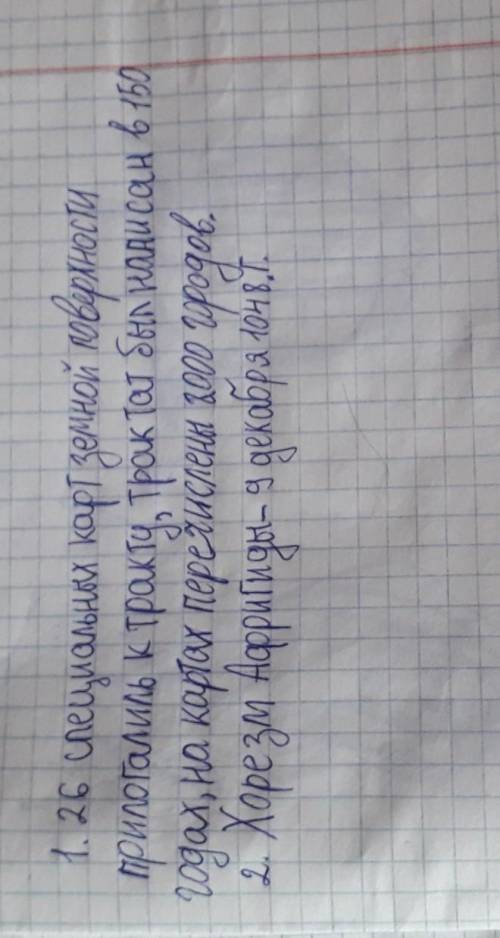 1. 26 специальных карт земной поверхности
прилогались к тракту, Трактат был написан в 150
годах, на картах перечислены 2000 городов.
2. Хорезм Афригиды - 9 декабря 1048.г.